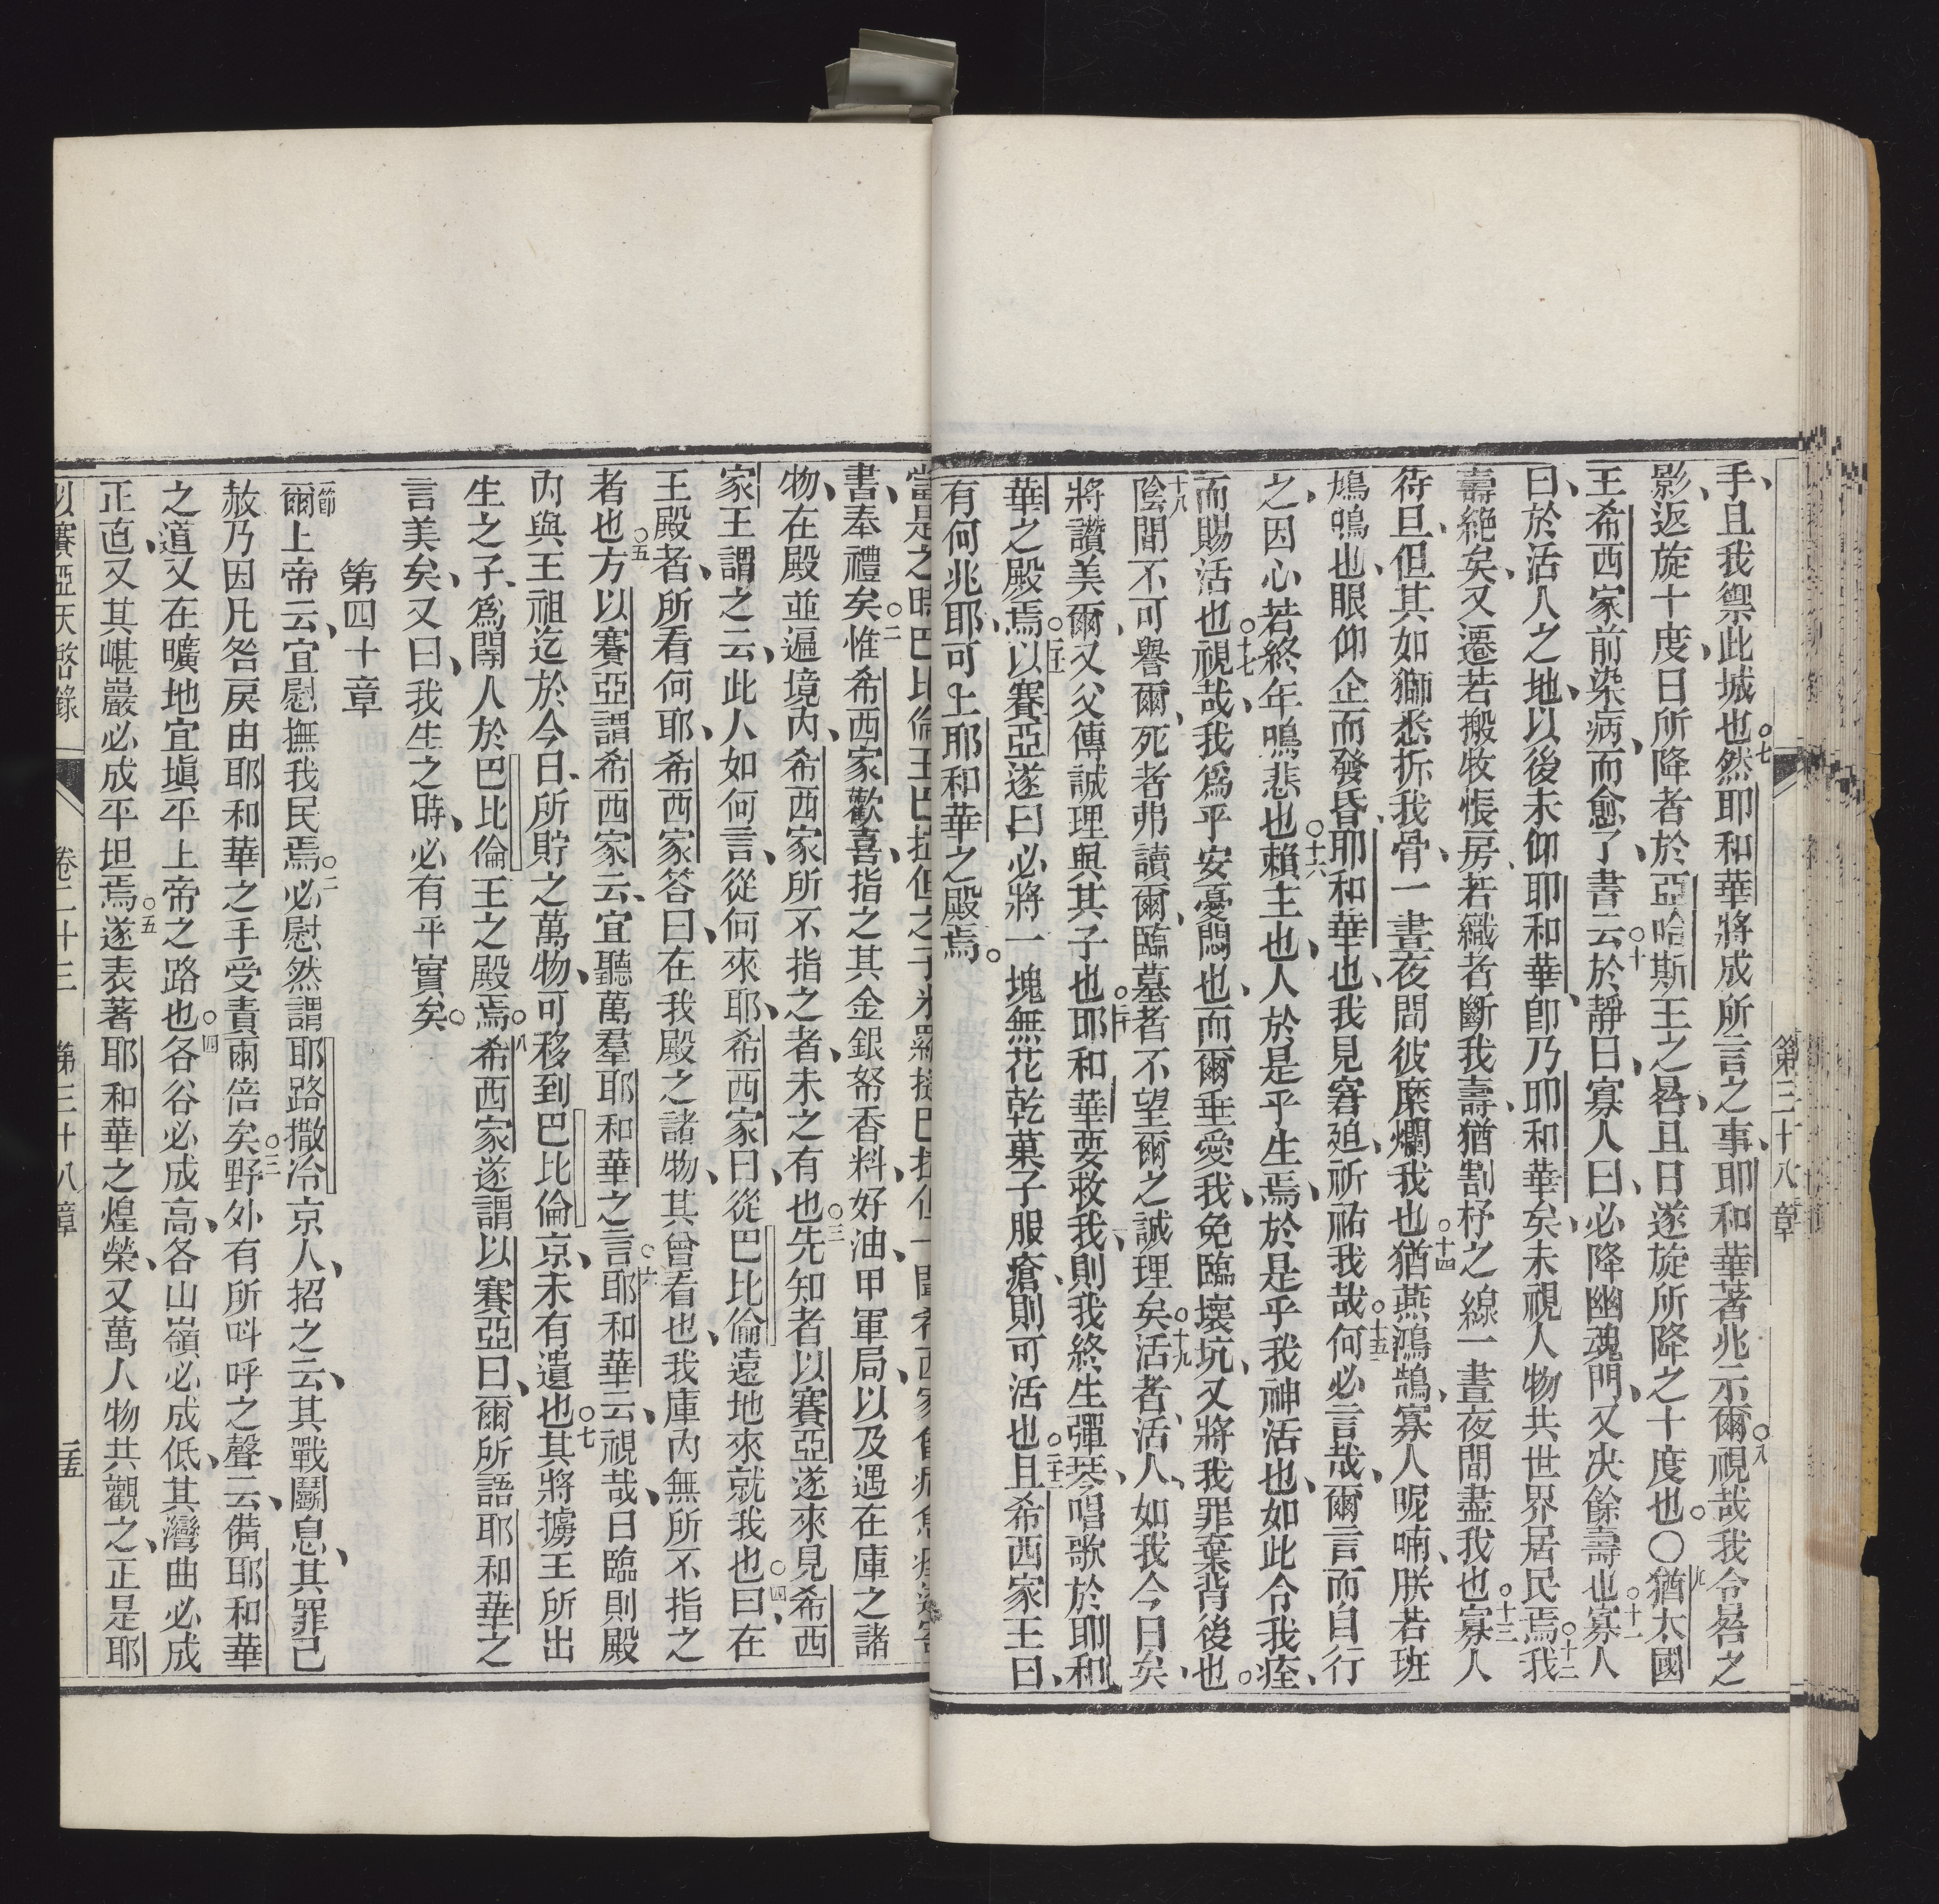 第三十八章
手、且我禦此城也○七然耶和華將成所言之事、耶和華著兆示爾○八視哉我令晷之
影、返旋十度、日所降者於亞哈斯王之晷、且日遂旋所降之十度也。○九猶太國
王希西家前染病、而愈了、書云○十於靜日、寡人曰、必降幽魂門、又決餘壽也○十一寡人
曰、於活人之地、以後未仰耶和華、卽乃耶和華矣、未視人物共世界居民焉○十二我
壽絕矣、又遷若搬牧帳房、若織者斷我壽、猶割杼之線一晝夜間盡我也○十三寡人
待旦、但其如獅悉折我骨、一晝夜間彼糜爛我也○十四猶燕鴻鵠、寡人呢喃、朕若班
鳩鳴也、眼仰企而發昏、耶和華也、我見窘迫、祈祐我哉○十五何必言哉、爾言而自行
之、因心若終年鳴悲也○十六賴主也、人於是乎生焉、於是乎我神活也、如此令我痊、
而賜活也○十七視哉、我爲平安憂悶也、而爾垂愛我、免臨壞坑、又將我罪棄背後也。
十八陰間不可譽爾、死者弗讀爾、臨墓者不望爾之誠理矣○十九活者、活人、如我今日矣、
將讚美爾、又父傳誠理與其子也○二十耶和華要救我、則我終生彈琴、唱歌於耶和
華之殿焉○二十一以賽亞遂曰必將一塊無花乾菓子服瘡、則可活也○二十二且希西家王曰、
有何兆耶、可上耶和華之殿焉。
書、奉禮矣○二惟希西家歡喜、指之其金銀帑香料、好油、甲軍局、以及遇在庫之諸
物、在殿並遍境內、希西家所不指之者、未之有也○三先知者以賽亞遂來見希西
家王謂之云、此人如何言、從何來耶、希西家曰、從巴比倫遠地來就我也○四曰、在
王殿者、所看何耶、希西家答曰、在我殿之諸物、其曾看也、我庫內無所不指之
者也○五方以賽亞謂希西家云、宜聽萬羣耶和華之言○六耶和華云、視哉、日臨則殿
內與王祖迄於今日、所貯之萬物、可移到巴比倫京、未有遺也○七其將擄王所出
生之子、爲閹人於巴比倫王之殿焉○八希西家遂謂以賽亞曰、爾所語耶和華之
言美矣、又曰、我生之時、必有平實矣。
第四十章
一節爾上帝云、宜慰撫我民焉○二必慰然謂耶路撒冷京人、招之云、其戰鬭息、其罪已
赦乃因凡咎戾由耶和華之手受責兩倍矣○三野外有所呌呼之聲云、備耶和華
之道、又在曠地宜塡平上帝之路也○四各谷必成高、各山嶺必成低、其灣曲必成
正直、又其嵁巖必成平坦焉○五遂表著耶和華之煌榮、又萬人物共觀之、正是耶
以賽亞天啓錄　卷二十三　第三十八章　二十五